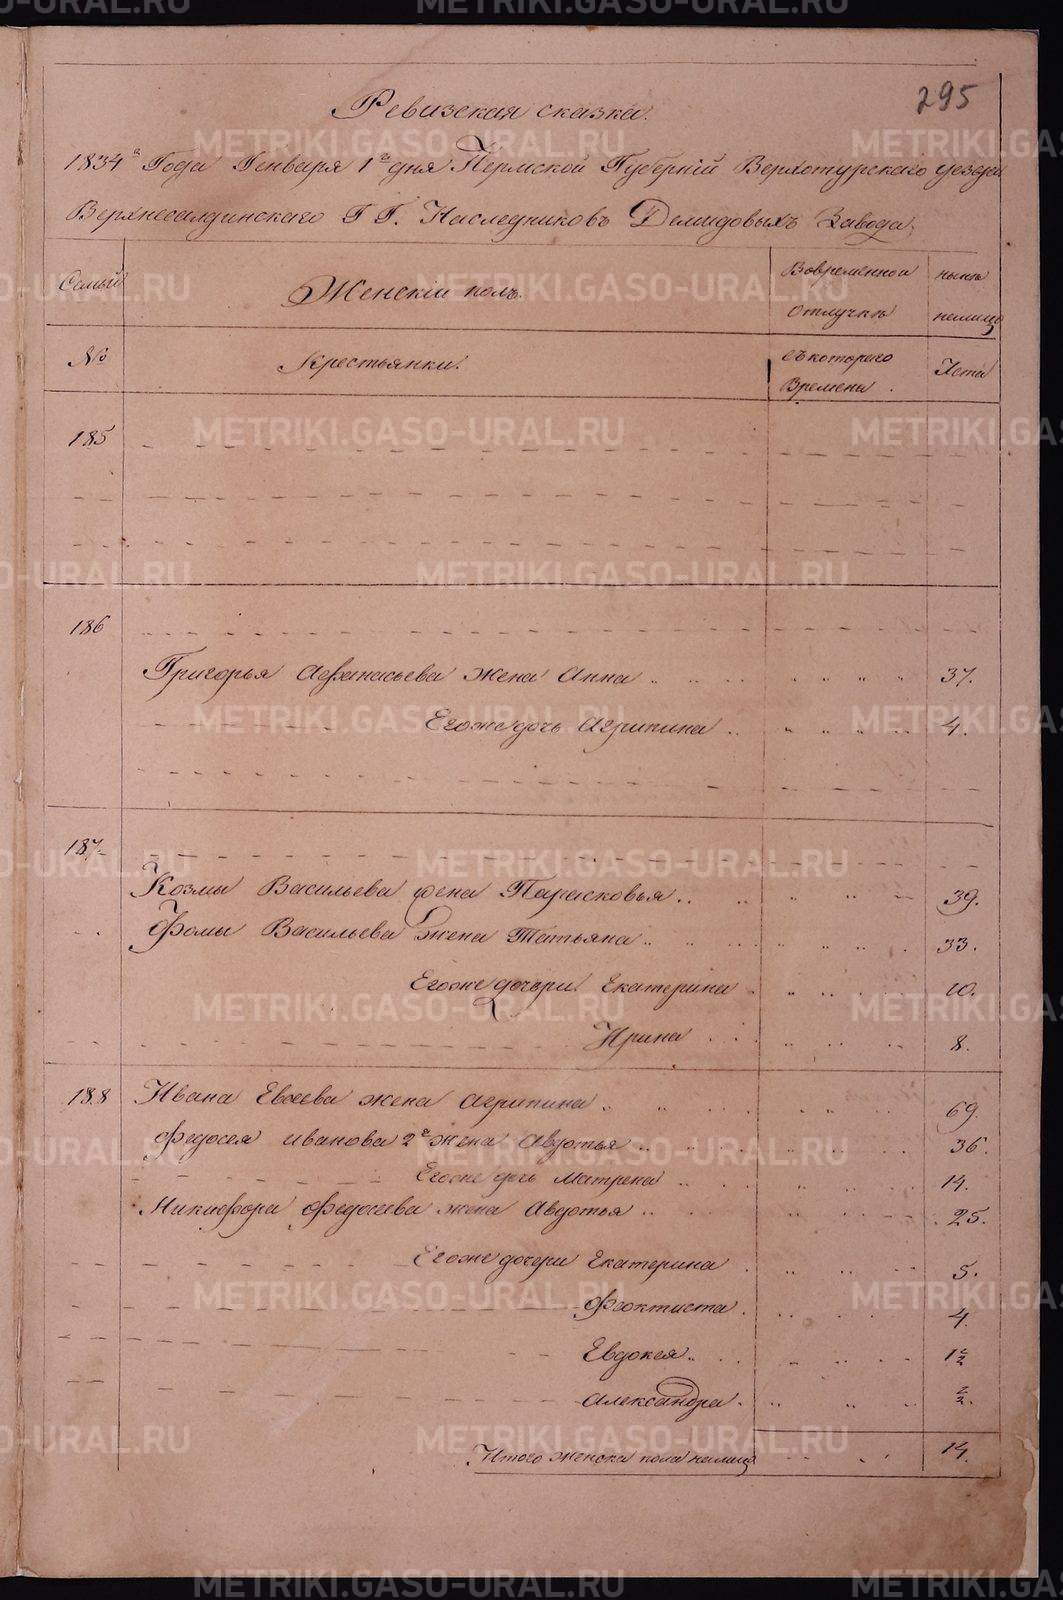 295
Ревизская сказка.
1834 года Генваря 1го дня Пермской Губернiи Верхотурскаго уезда
Верхнесалдинскаго Г. Г. Наследниковъ Демидовыхъ Завода
Семьи Женскiй полъ. Вовременной отлучке ныне налицо
№ Крестьянки. съ котораго времени Лета
185
186
Григорья Афанасьева жена Анна 37.
Его же дочь Агрипина 4.
187.
Козмы Васильева жена Парасковья 39.
Фомы Васильева жена Татьяна 33.
Его же дочери Екатерина 10.
Ирина 8.
188 Ивана Евсеева жена Агрипина 69.
Федосея Иванова 2я жена Авдотья 36.
Его же дочь Матрена 14.
Никифора Федосеева жена Авдотья 25.
Его же дочери Екатерина 5.
Феоктиста 4.
Евдокея
Александра
Итого женска пола налицо 14.
METRIKI.GASO-URAL.RU